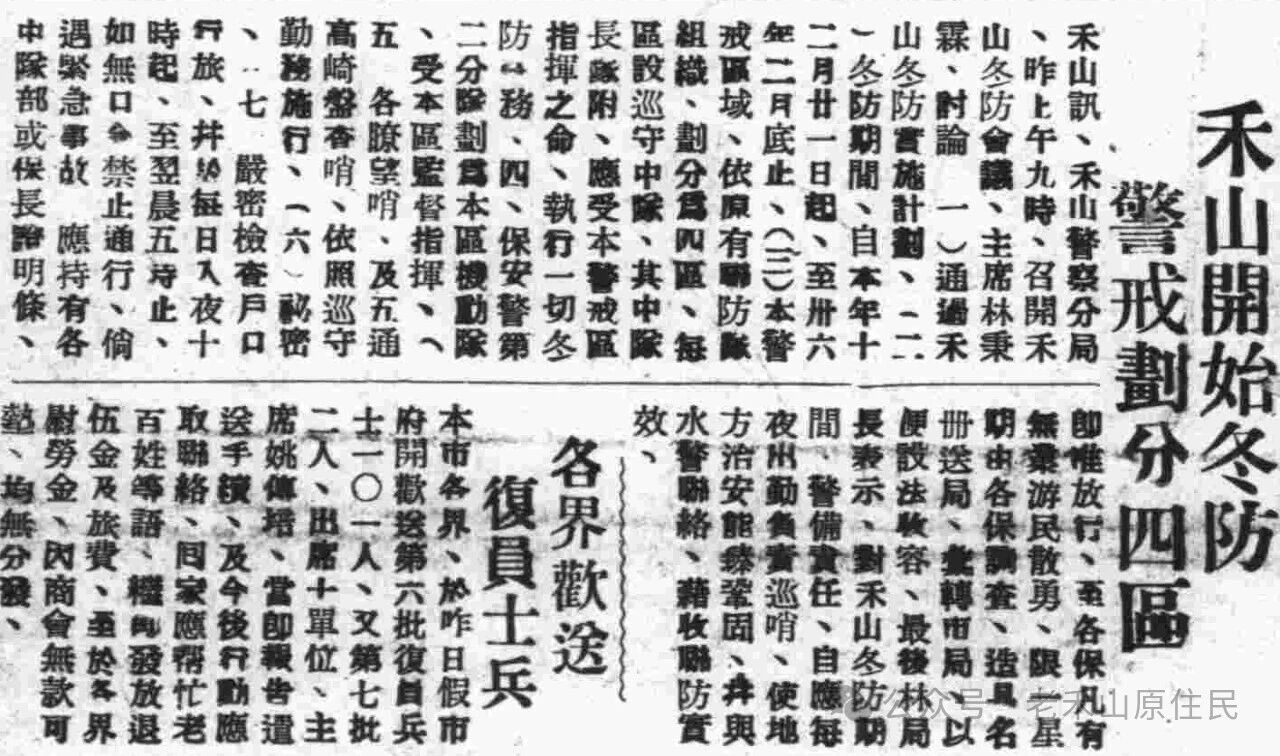 禾山開始冬防
警戒劃分四區
禾山訊、禾山警察分局
、昨上午九時、召開禾
山冬防會議、主席林秉
霖、討論 一）通過禾
山冬防實施計劃、（二
）冬防期間、自本年十
二月廿一日起、至卅六
年二月底止、（三）本警
戒區域、依原有聯防隊
組織、劃分爲四區、每
區設巡守中隊、其中隊
長隊附、應受本警戒區
指揮之命、執行一切冬
防 務、四、保安警第
二分隊劃爲本區機動隊
、受本區監督指揮、（
五 各瞭望哨、及五通
高崎盤查哨、依照巡守
勤務施行、（六）祕密
、 七 嚴密檢查戶口
行旅、幷 每每日入夜十
時起、至翌晨五時止、
如無口令禁止通行、倘
遇緊急事故 應持有各
中隊部或保長證明條、
卽准放行、至各保凡有
無業游民散勇、限一星
期由各保調查、造具名
册送局、彙轉市局、以
便設法收容、最後林局
長表示、對禾山冬防期
間、警備責任、自應每
夜出勤負責巡哨、使地
方治安能臻鞏固、幷與
水警聯絡、藉收聯防實
效、
各界歡送
復員士兵
本市各界、於昨日假市
府開歡送第六批復員兵
士一〇一人、又第七批
二人、出席十單位、主
席姚傳培、當卽報告遣
送手續、及今後行動應
取聯絡、囘家應稱忙老
百姓等語、繼 發放退
伍金及旅費、至於各界
慰勞金、因商會無款可
墊、均無分發、
公众号 老禾山原住民